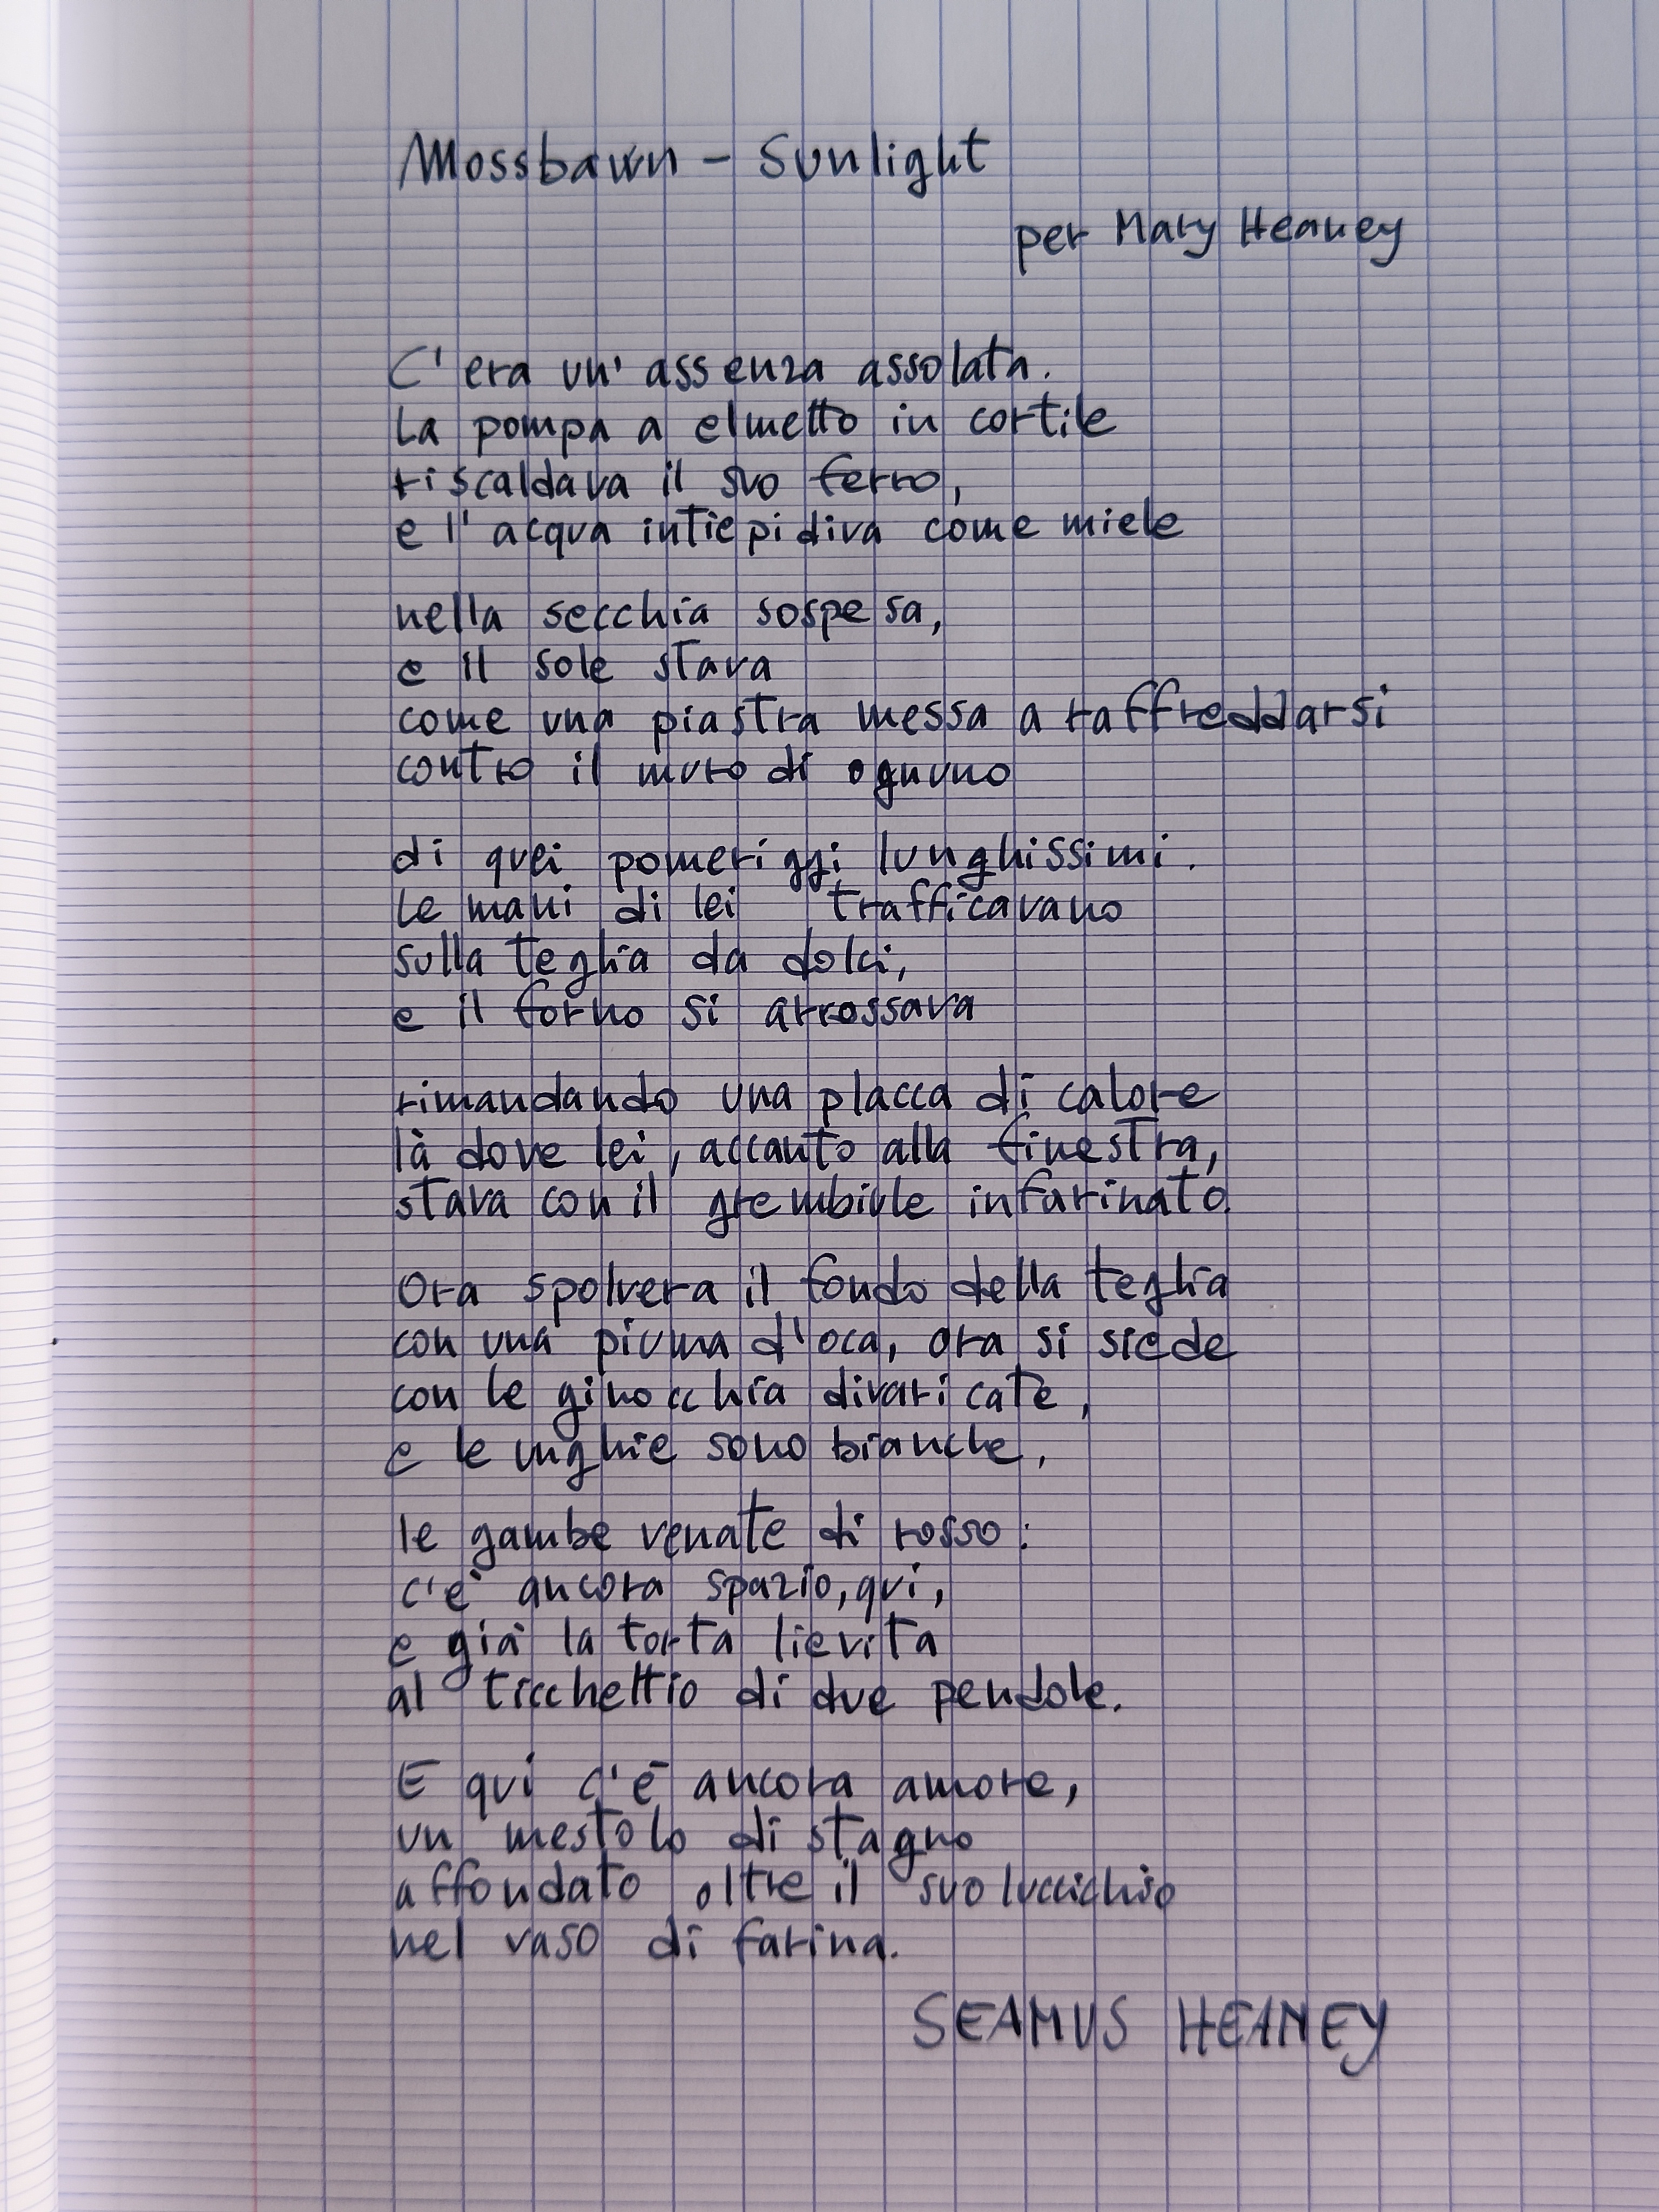 Mossbawn - Sunlight
per Mary Heaney
C'era un'assenza assolata.
La pompa a elmetto in cortile
riscaldava il suo ferro,
e l'acqua intiepidiva come miele
nella secchia sospesa,
e il sole stava
come una piastra messa a raffreddarsi
contro il muro di ognuno
di quei pomeriggi lunghissimi.
Le mani di lei trafficavano
sulla teglia da dolci,
e il forno si arrossava
rimandando una placca di calore
là dove lei, accanto alla finestra,
stava con il grembiule infarinato.
Ora spolvera il fondo della teglia
con una piuma d'oca, ora si siede
con le ginocchia divaricate,
e le unghie sono bianche,
le gambe venate di rosso:
c'è ancora spazio, qui,
e già la torta lievita
al ticchettio di due pendole.
E qui c'è ancora amore,
un mestolo di stagno
affondato oltre il suo luccichio
nel vaso di farina.
SEAMUS HEANEY